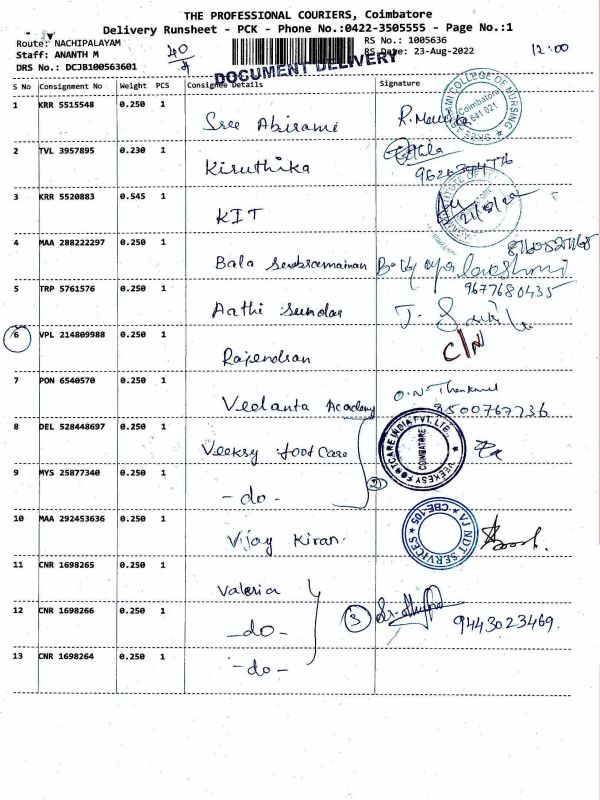 THE PROFESSIONAL COURIERS, Coimbatore
Delivery Runsheet - PCK - Phone No.:0422-3505555 - Page No.:1
Route: NACHIPALAYAM
RS No.: 1005636
Staff: ANANTH M
RS Date: 23-Aug-2022
12:00
DRS No.: DCJB100563601
DOCUMENT DELIVERY
S No Consignment No Weight PCS Consignee Details Signature
1 KRR 5515548 0.250 1 Sree Abirami
COLLEGE OF NURSING
Coimbatore
641 021
2 TVL 3957895 0.230 1 Kiruthika
3 KRR 5520883 0.545 1 KIT
4 MAA 288222297 0.250 1 Bala Subramainan
5 TRP 5761576 0.250 1 Aathi Sundar
9677680435
6 VPL 214809988 0.250 1 Rajendran C/N
7 PON 6540570 0.250 1 Vedanta Academy
9500767736
8 DEL 528448697 0.250 1 Veeksy foot Care
VEEKESY FORTCARE INDIA PVT. LTD
COIMBATORE
9 MYS 25877340 0.250 1 -do- 2
10 MAA 292453636 0.250 1 Vijay Kiran
VJ NDT SERVICES
CBE-105
11 CNR 1698265 0.250 1 Valeria
12 CNR 1698266 0.250 1 -do- 3 9443023469
13 CNR 1698264 0.250 1 -do-